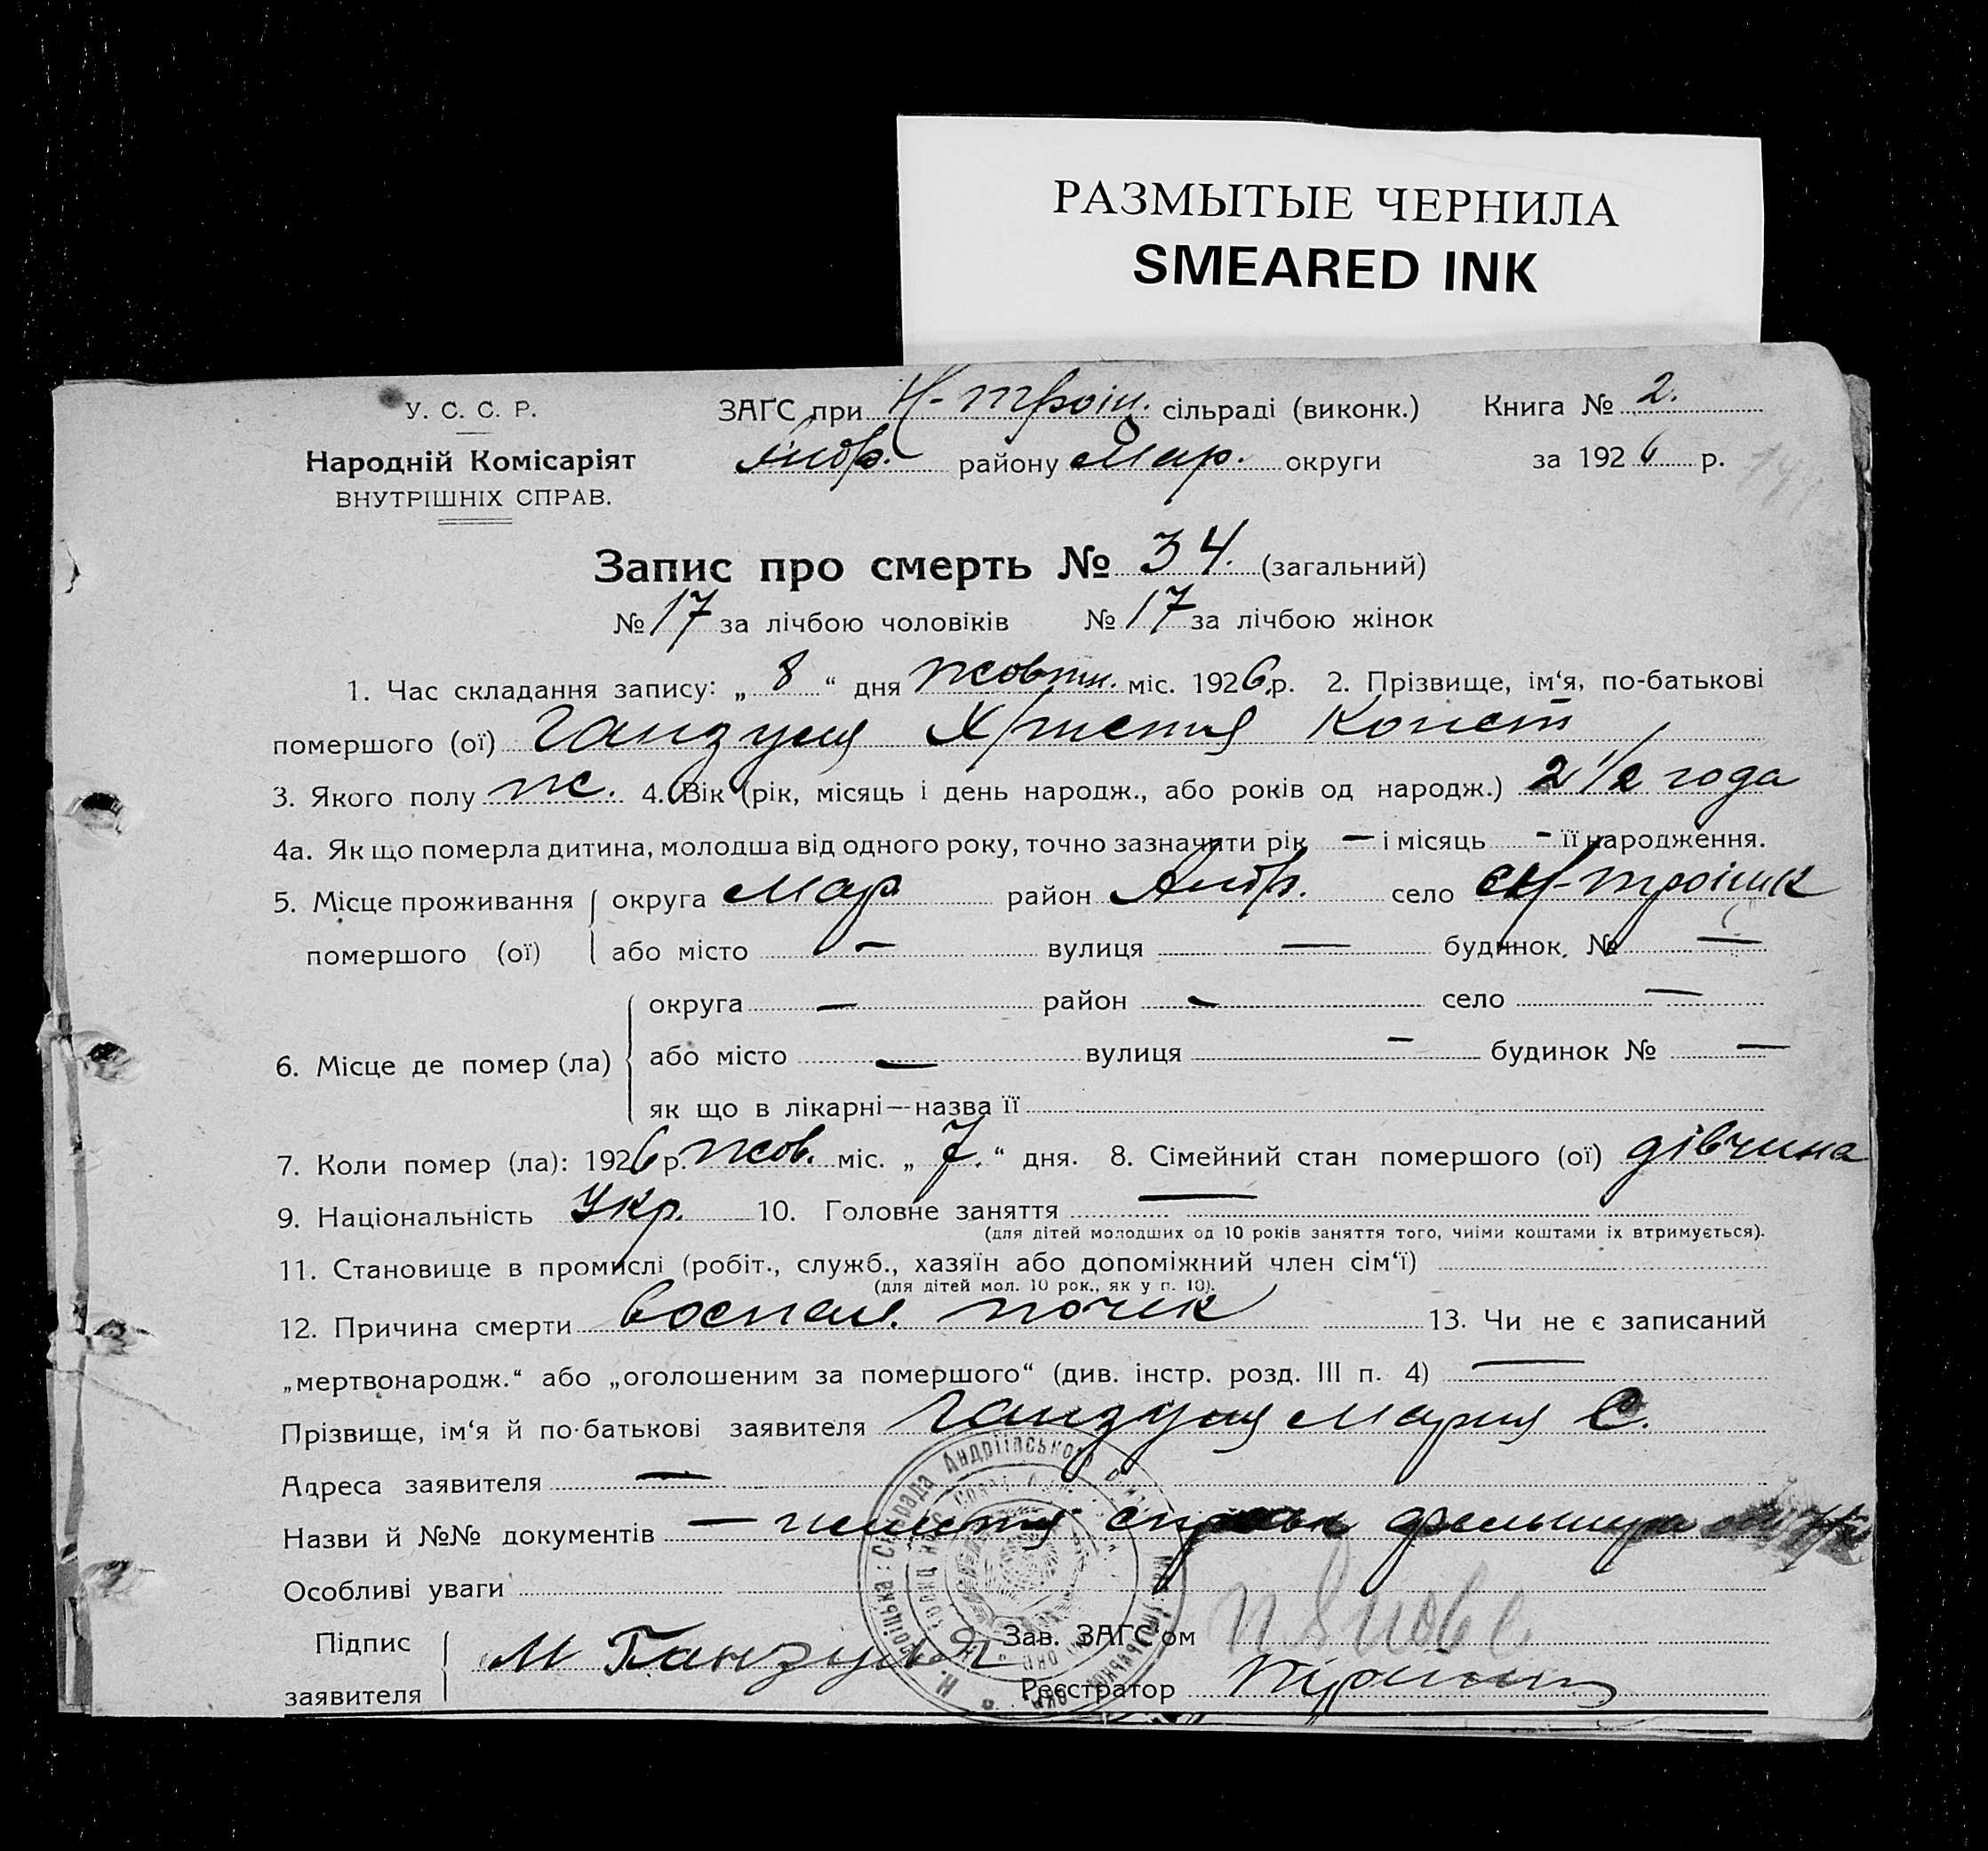 РАЗМЫТЫЕ ЧЕРНИЛА
SMEARED INK
У. С. С. Р.
ЗАҐС при Н-Троіц. сільраді (виконк.) Книга № 2.
Народній Комісаріят
Андр. району Мар. округи за 1926 р.
ВНУТРІШНІХ СПРАВ.
Запис про смерть № 34. (загальний)
№ 17 за лічбою чоловіків № 17 за лічбою жінок
1. Час складання запису: „ 8 “ дня жовтн. міс. 1926 р. 2. Прізвище, ім‘я, по-батькові
помершого (ої) Ганзуля Христия Конст
3. Якого полу ж. 4. Вік (рік, місяць і день народж., або років од народж.) 2 1/2 года
4а. Як що померла дитина, молодша від одного року, точно зазначити рік — і місяць - її народження.
5. Місце проживання округа Мар район Андр. село Н-Троіцьк
помершого (ої) або місто — вулиця — будинок, № —
округа — район — село —
6. Місце де помер (ла) або місто — вулиця — будинок № —
як що в лікарні—назва її
7. Коли помер (ла): 1926 р. жов. міс. „ 7. “ дня. 8. Сімейний стан помершого (ої) дівчина
9. Національність Укр. 10. Головне заняття —
(для дітей молодших од 10 років заняття того, чиїми коштами їх втримується).
11. Становище в промислі (робіт., служб., хазяїн або допоміжний член сім‘ї)
(для дітей мол. 10 рок., як у п. 10).
12. Причина смерти воспал. почек 13. Чи не є записаний
„мертвонародж.“ або „оголошеним за помершого“ (див. інстр. розд. III п. 4) —
Прізвище, ім‘я й по-батькові заявителя Ганзуля Мария С.
Адреса заявителя —
Назви й №№ документів — фельшера
Особливі уваги
Підпис
заявителя М Ганзуля
Зав. ЗАҐС‘ом
Реєстратор